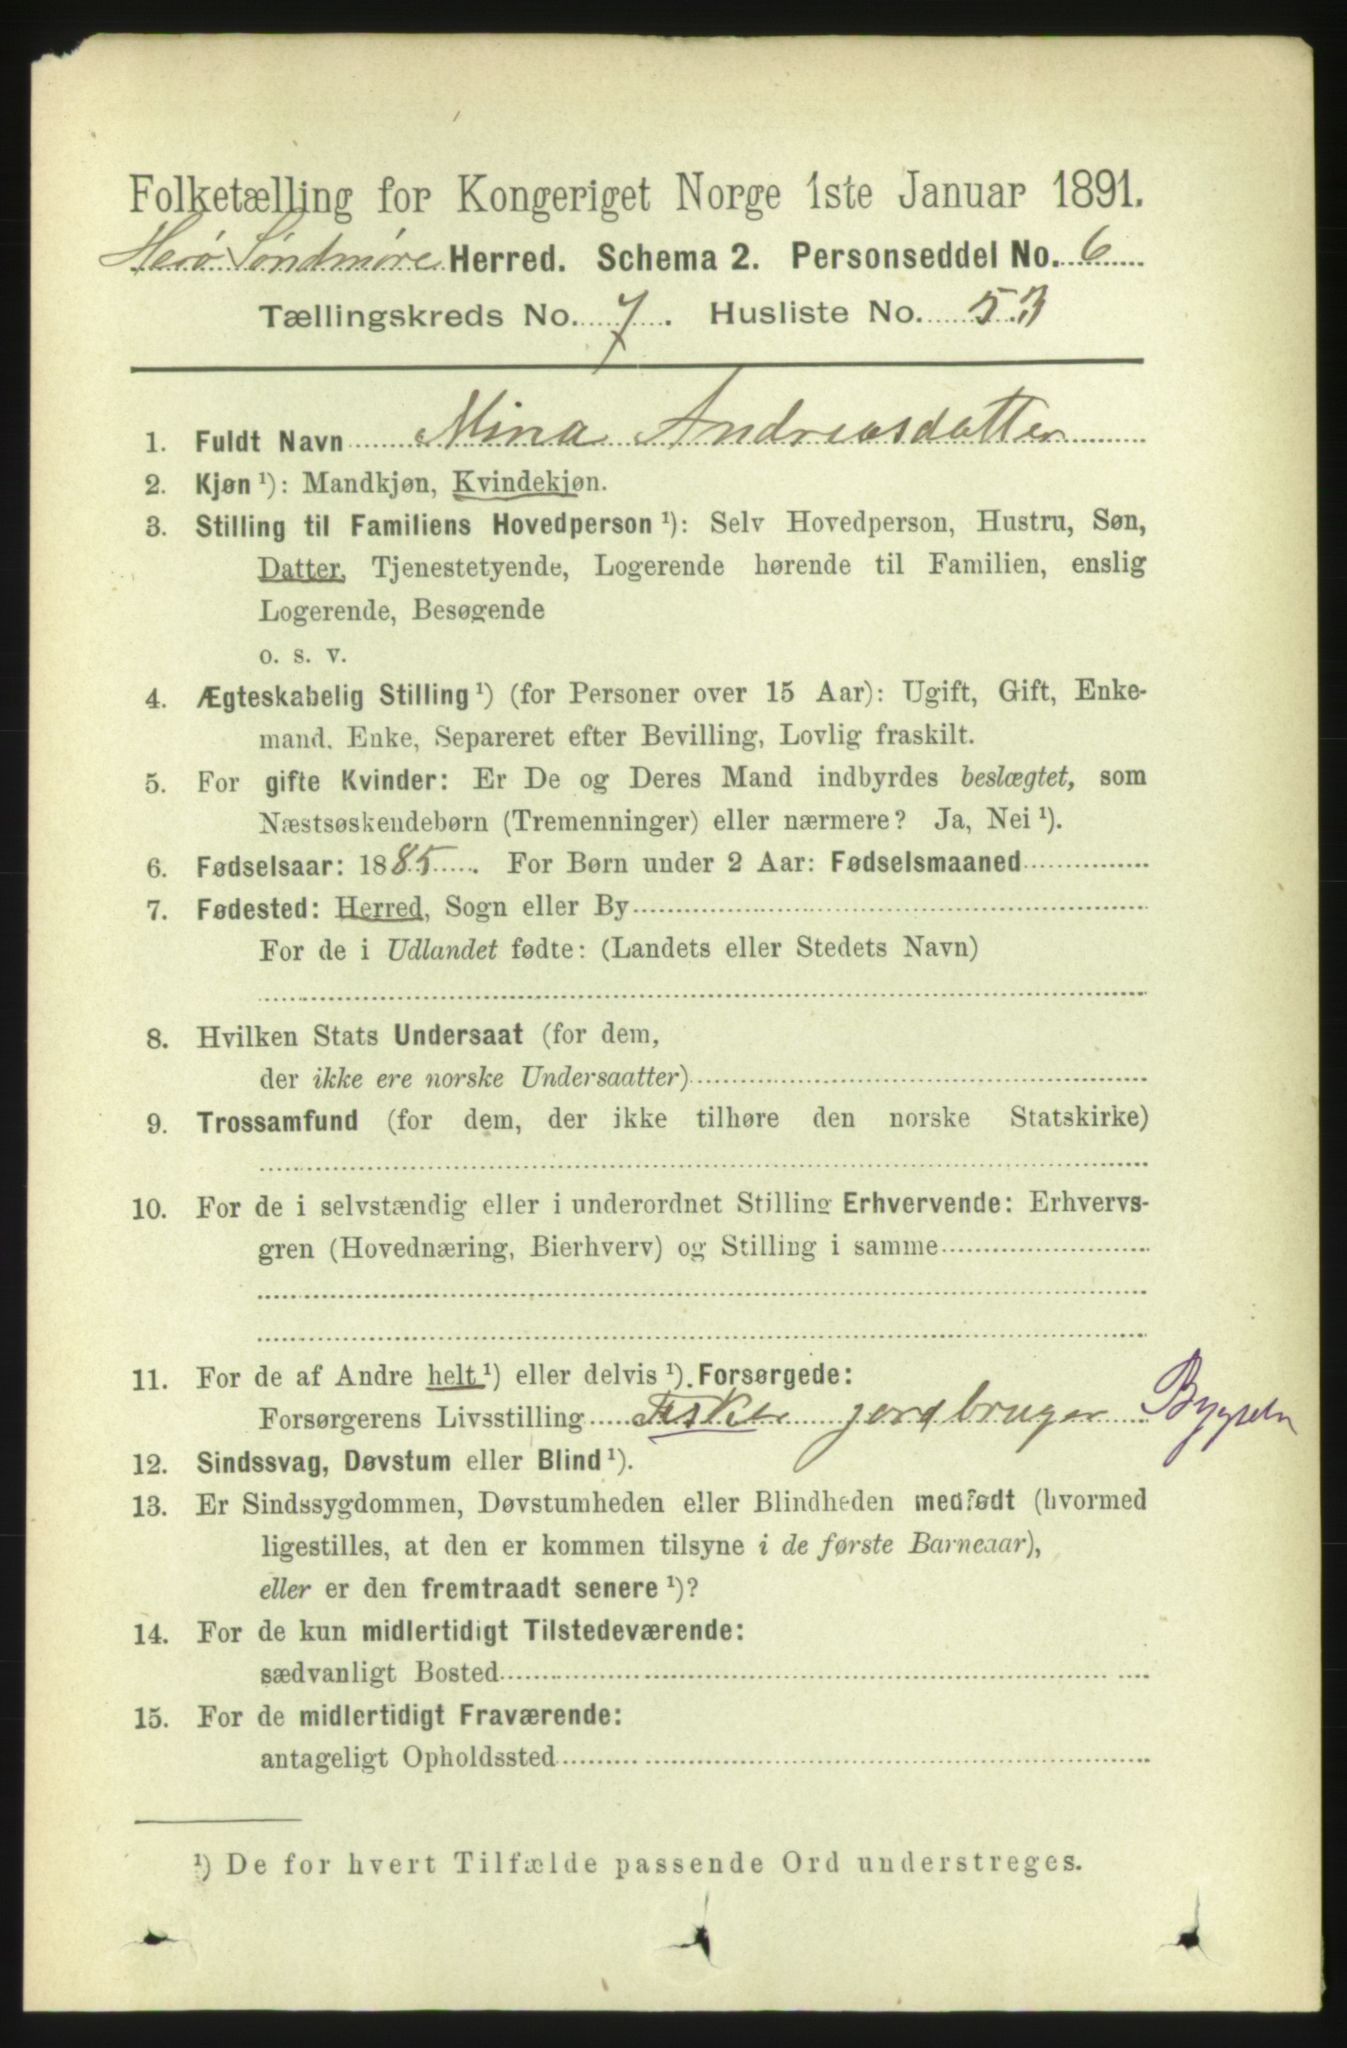 Folketælling for Kongeriget Norge 1ste Januar 1891.
Herö Söndmöre Herred. Schema 2. Personseddel No. 6
Tællingskreds No. 7. Husliste No. 53
1. Fuldt Navn Mina Andreasdatter
2. Kjøn ¹): Mandkjøn, Kvindekjøn.
3. Stilling til Familiens Hovedperson ¹): Selv Hovedperson, Hustru, Søn,
Datter, Tjenestetyende, Logerende hørende til Familien, enslig
Logerende, Besøgende
o. s. v.
4. Ægteskabelig Stilling ¹) (for Personer over 15 Aar): Ugift, Gift, Enke-
mand, Enke, Separeret efter Bevilling, Lovlig fraskilt.
5. For gifte Kvinder: Er De og Deres Mand indbyrdes beslægtet, som
Næstsøskendebørn (Tremenninger) eller nærmere? Ja, Nei ¹).
6. Fødselsaar: 1885. For Børn under 2 Aar: Fødselsmaaned
7. Fødested: Herred, Sogn eller By
For de i Udlandet fødte: (Landets eller Stedets Navn)
8. Hvilken Stats Undersaat (for dem,
der ikke ere norske Undersaatter)
9. Trossamfund (for dem, der ikke tilhøre den norske Statskirke)
10. For de i selvstændig eller i underordnet Stilling Erhvervende: Erhvervs-
gren (Hovednæring, Bierhverv) og Stilling i samme
11. For de af Andre helt ¹) eller delvis ¹). Forsørgede:
Forsørgerens Livsstilling Fisker jordbruger Bygseln
12. Sindssvag, Døvstum eller Blind ¹).
13. Er Sindssygdommen, Døvstumheden eller Blindheden medfødt (hvormed
ligestilles, at den er kommen tilsyne i de første Barneaar),
eller er den fremtraadt senere ¹)?
14. For de kun midlertidigt Tilstedeværende:
sædvanligt Bosted
15. For de midlertidigt Fraværende:
antageligt Opholdssted
¹) De for hvert Tilfælde passende Ord understreges.